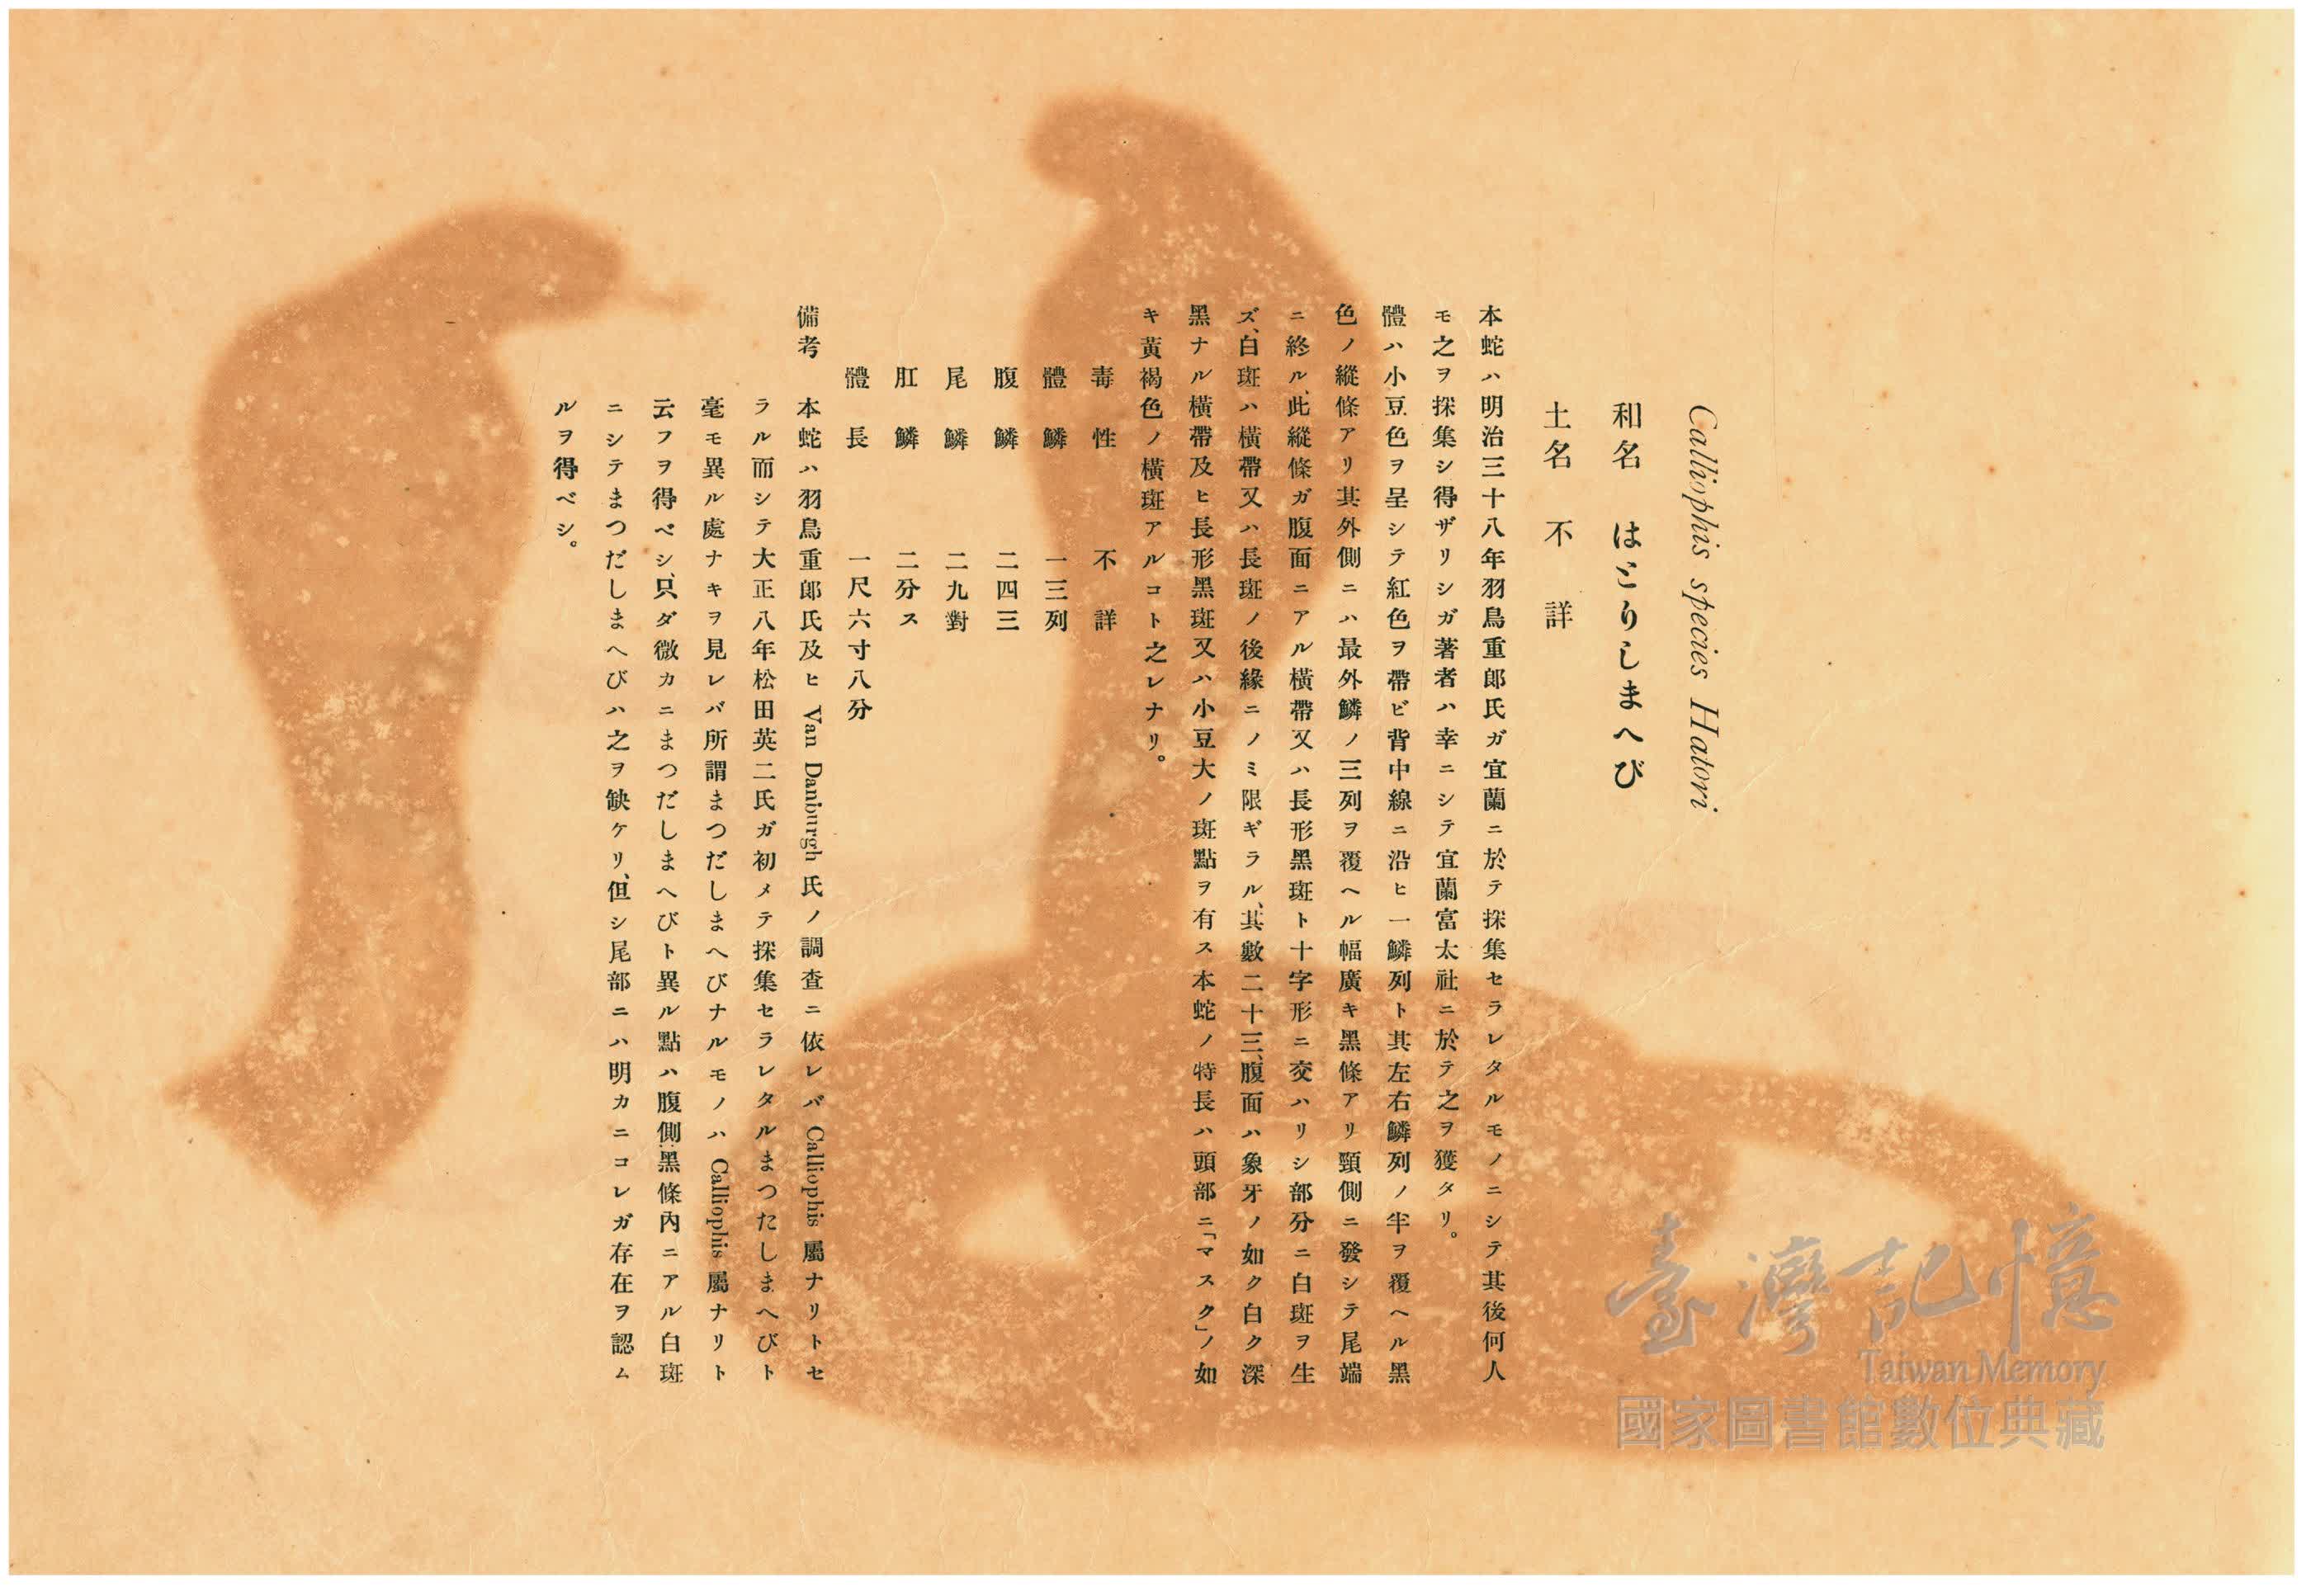 Calliophis species Hatori
和名　はとりしまへび
土名　不詳
本蛇ハ明治三十八年羽鳥重郎氏ガ宜蘭ニ於テ採集セラレタルモノニシテ其後何人
モ之ヲ採集シ得ザリシガ著者ハ幸ニシテ宜蘭富太社ニ於テ之ヲ獲タリ。
體ハ小豆色ヲ呈シテ紅色ヲ帶ビ背中線ニ沿ヒ一鱗列ト其左右鱗列ノ半ヲ覆ヘル黑
色ノ縱條アリ其外側ニハ最外鱗ノ三列ヲ覆ヘル幅廣キ黑條アリ頸側ニ發シテ尾端
ニ終ル、此縱條ガ腹面ニアル橫帶又ハ長形黑斑ト十字形ニ交ハリシ部分ニ白斑ヲ生
ズ、白斑ハ橫帶又ハ長斑ノ後緣ニノミ限ギラル、其數二十三、腹面ハ象牙ノ如ク白ク深
黑ナル橫帶及ヒ長形黑斑又ハ小豆大ノ斑點ヲ有ス本蛇ノ特長ハ頭部ニ「マスク」ノ如
キ黃褐色ノ橫斑アルコト之レナリ。
毒性　不詳
體鱗　一三列
腹鱗　二四三
尾鱗　二九對
肛鱗　二分ス
體長　一尺六寸八分
備考　本蛇ハ羽鳥重郎氏及ヒ Van Danburgh 氏ノ調査ニ依レバ Calliophis 屬ナリトセ
ラル而シテ大正八年松田英二氏ガ初メテ採集セラレタルまつたしまへびト
毫モ異ル處ナキヲ見レバ所謂まつだしまへびナルモノハ Calliophis 屬ナリト
云フヲ得ベシ、只ダ微カニまつだしまへびト異ル點ハ腹側黑條內ニアル白斑
ニシテまつだしまへびハ之ヲ缺ケリ、但シ尾部ニハ明カニコレガ存在ヲ認ム
ルヲ得ベシ。
臺灣記憶
Taiwan Memory
國家圖書館數位典藏